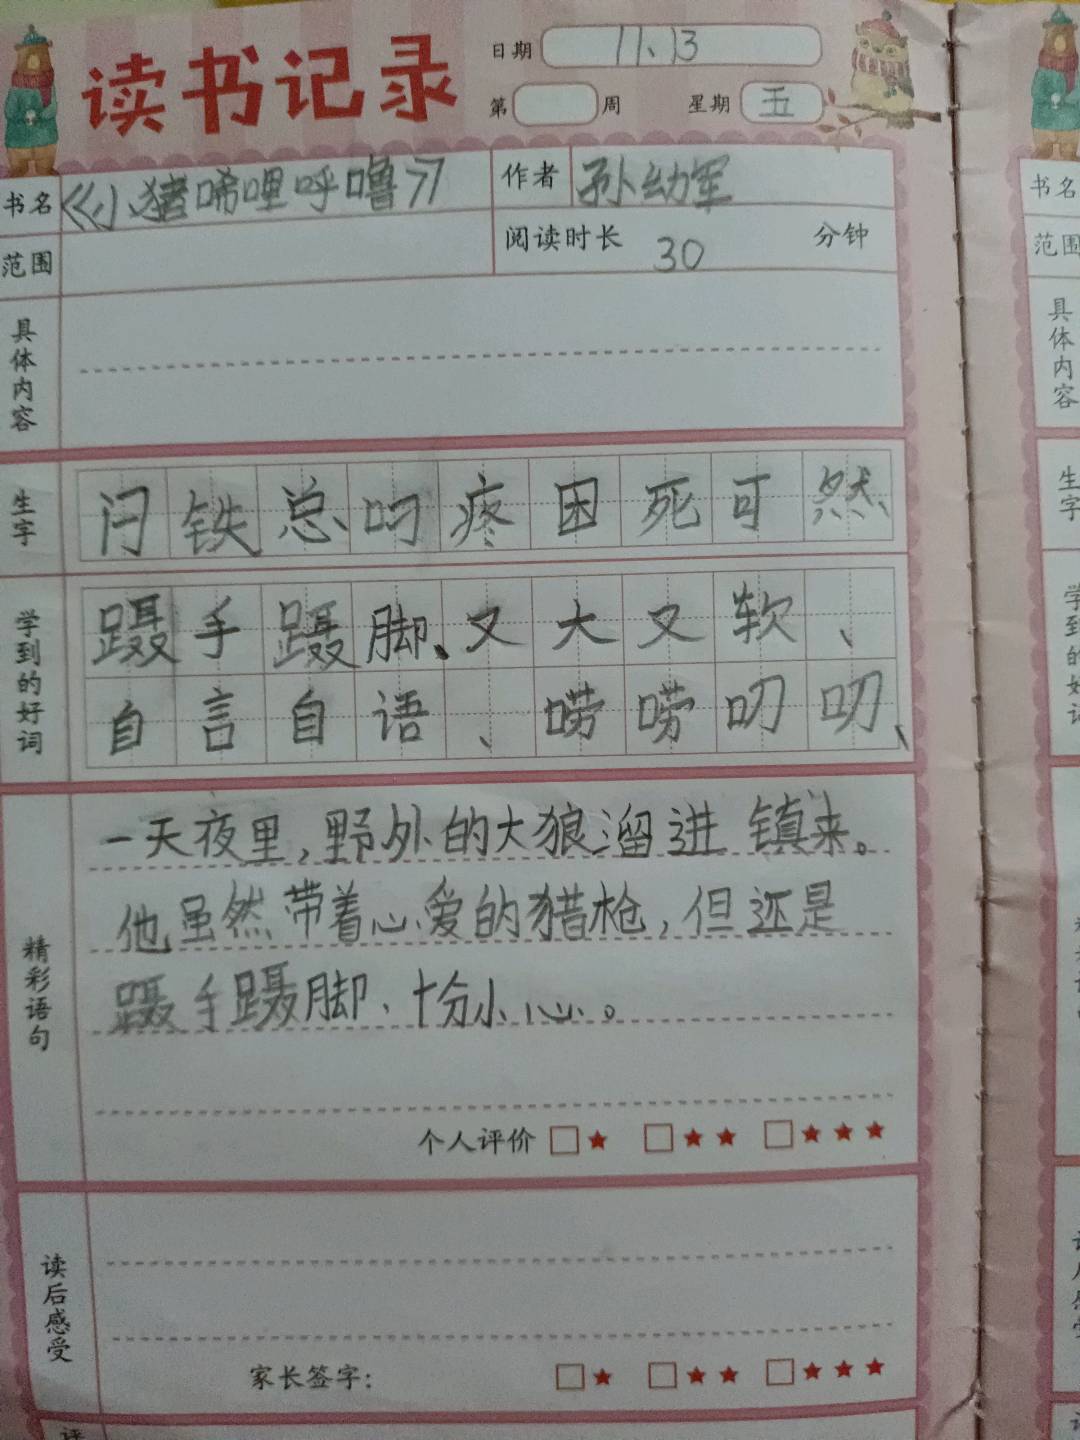 读书记录
日期 11、13
第 周 星期 五
书名 《小猪唏哩呼噜》 作者 孙幼军
范围 阅读时长 30 分钟
具体内容
生字 闩 铁 总 叼 疼 困 死 可 然
学到的好词
蹑手蹑脚、又大又软、
自言自语、唠唠叨叨、
精彩语句
一天夜里,野外的大狼溜进镇来。
他虽然带着心爱的猎枪,但还是
蹑手蹑脚、十分小心。
个人评价 □★ □★★ □★★★
读后感受
家长签字: □★ □★★ □★★★
书名
范围
具体内容
生字